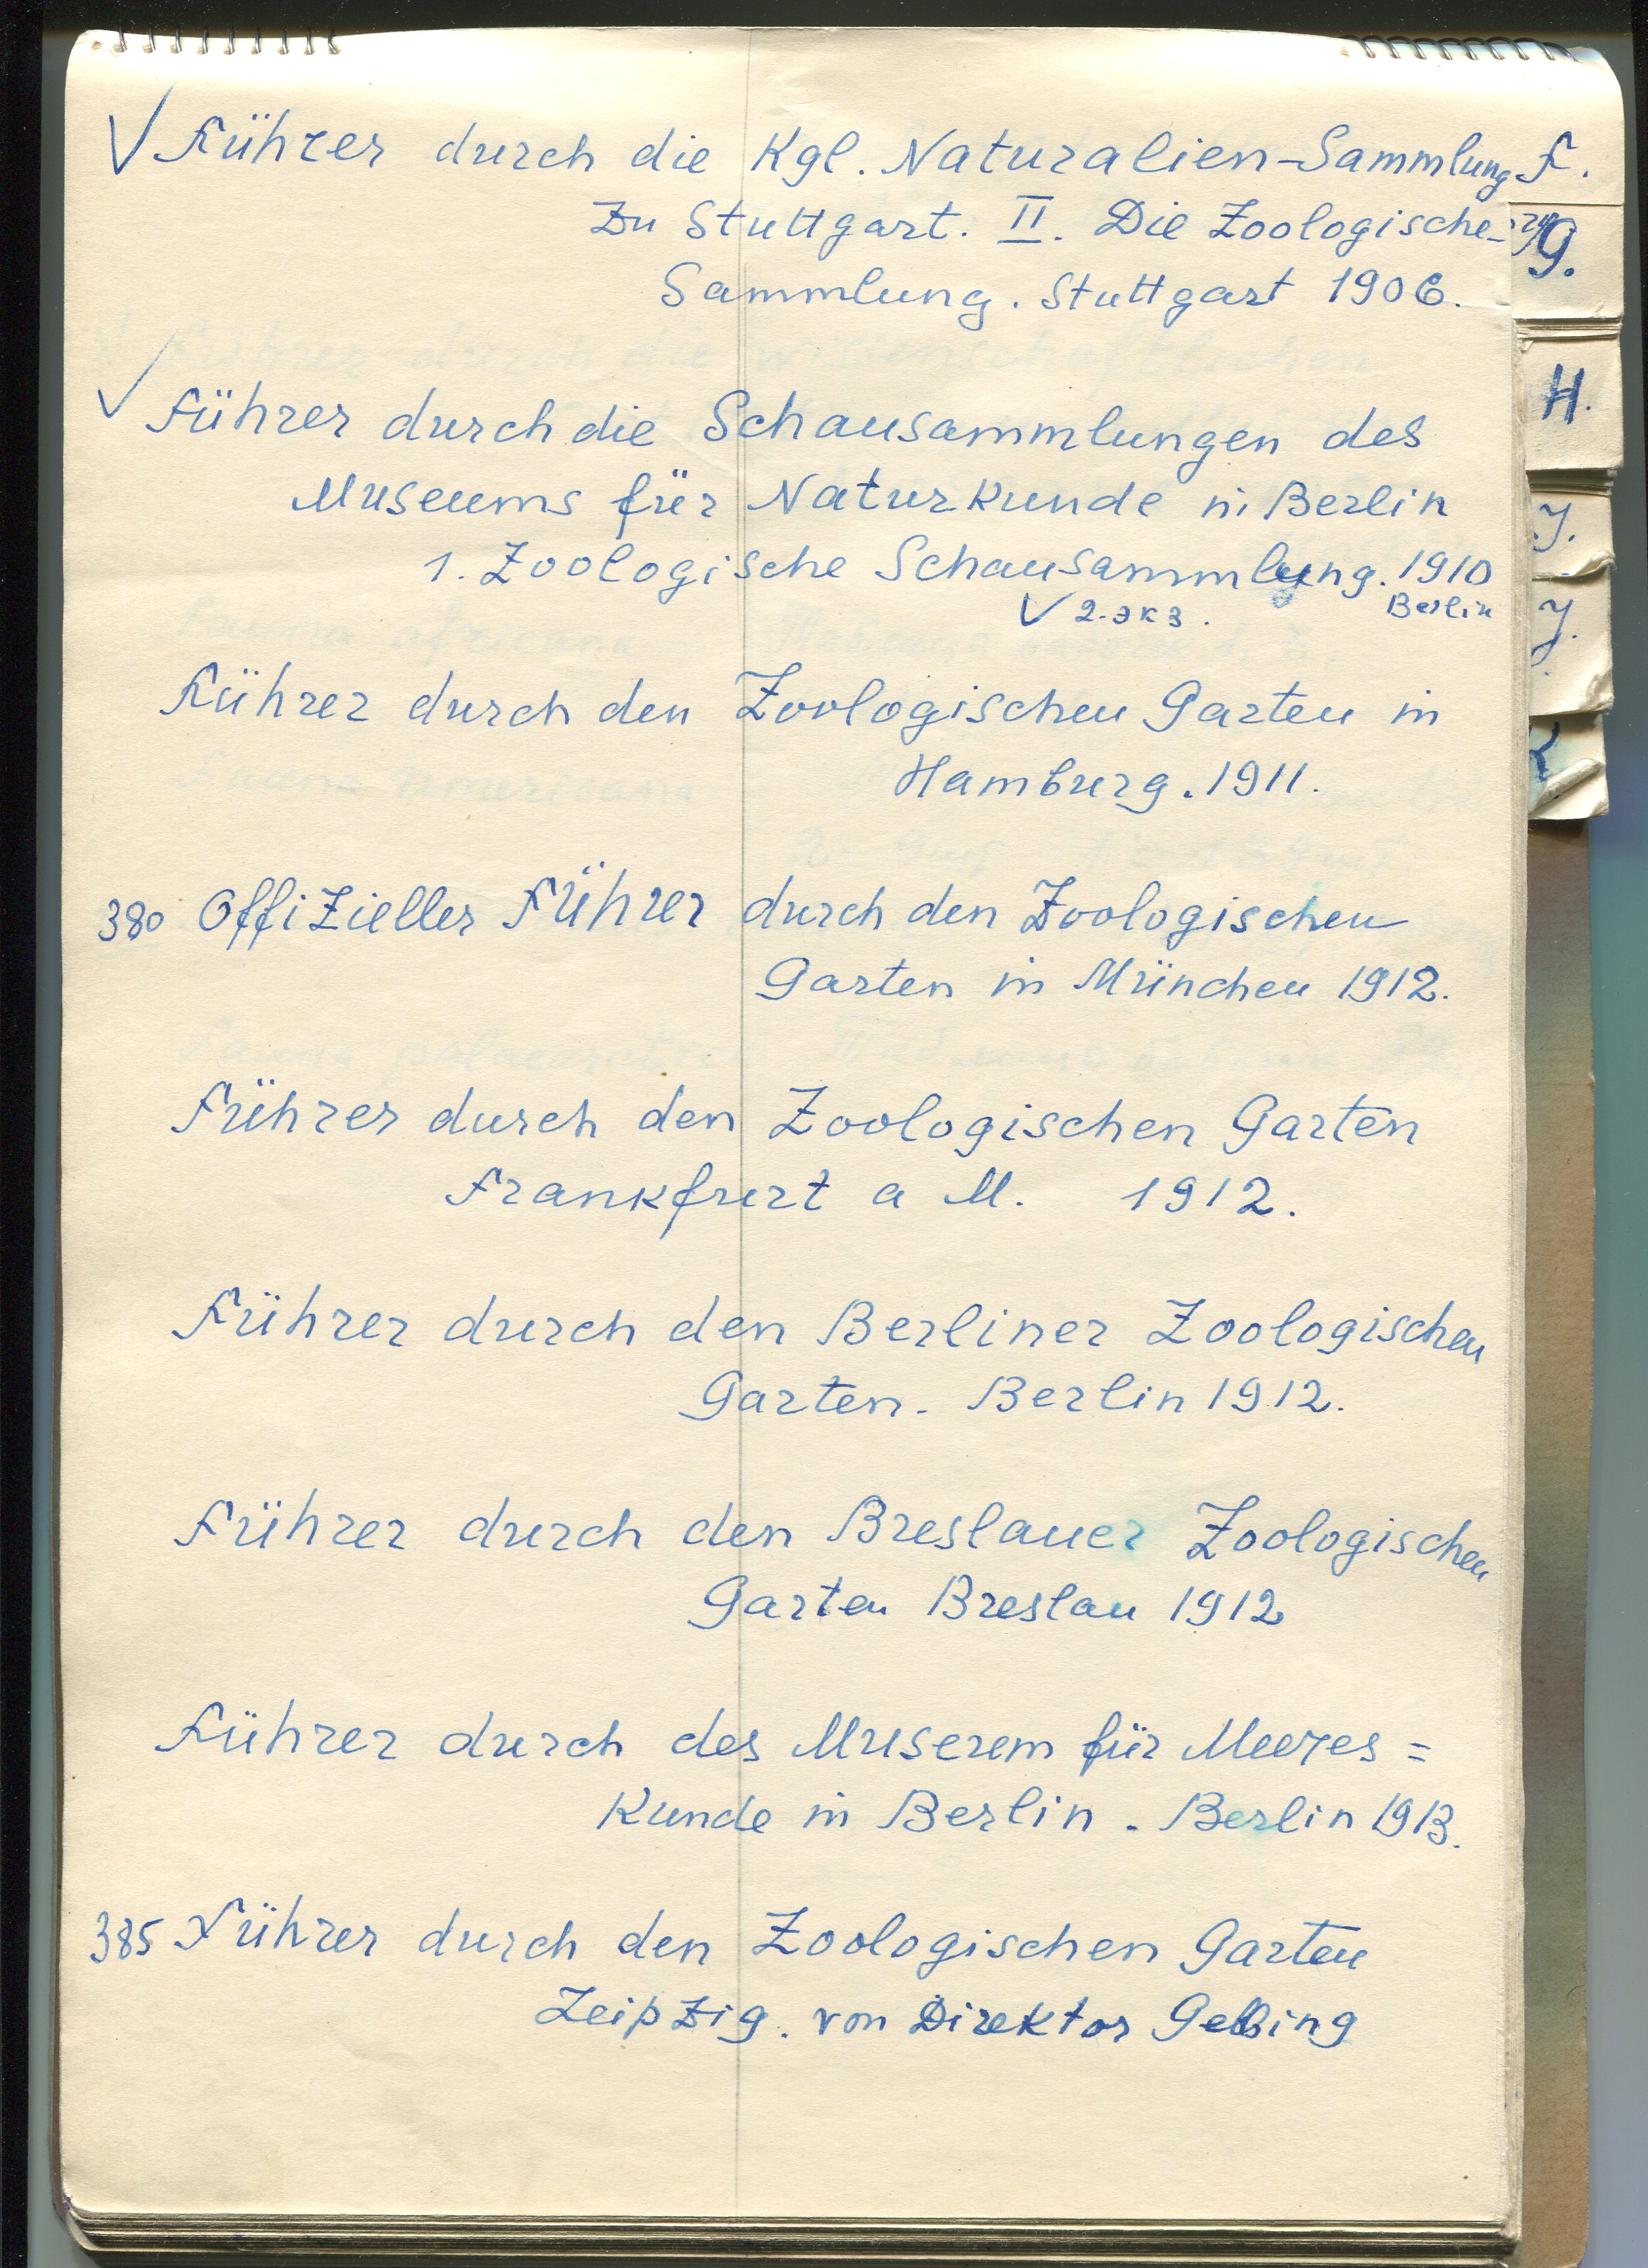 √ Führer durch die Kgl. Naturalien-Sammlung F.
Zu Stuttgart. II. Die Zoologische-
G.
Sammlung. Stuttgart 1906.
H.
√ Führer durch die Schausammlungen des
Museums für Naturkunde in Berlin
J.
1. Zoologische Schausammlung. 1910
Berlin
√ 2-экз.
J.
Führer durch den Zoologischen Garten in
Hamburg. 1911.
K
380 Offizieller Führer durch den Zoologischen
Garten in München 1912.
Führer durch den Zoologischen Garten
Frankfurt a M. 1912.
Führer durch den Berliner Zoologischen
Garten. Berlin 1912.
Führer durch den Breslauer Zoologischen
Garten Breslau 1912
Führer durch des Museum für Meeres=
Kunde in Berlin. Berlin 1913.
385 Führer durch den Zoologischen Garten
Leipzig. von Direktor Gebbing